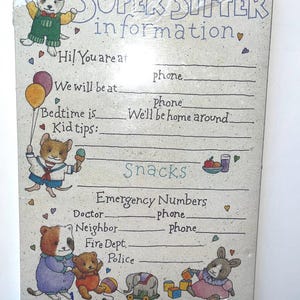 SUPER SITTER
information
Hi! You are at
phone
We will be at
phone
Bedtime is We'll be home around
Kid tips:
Snacks
Emergency Numbers
Doctor phone
Neighbor phone
Fire Dept.
Police